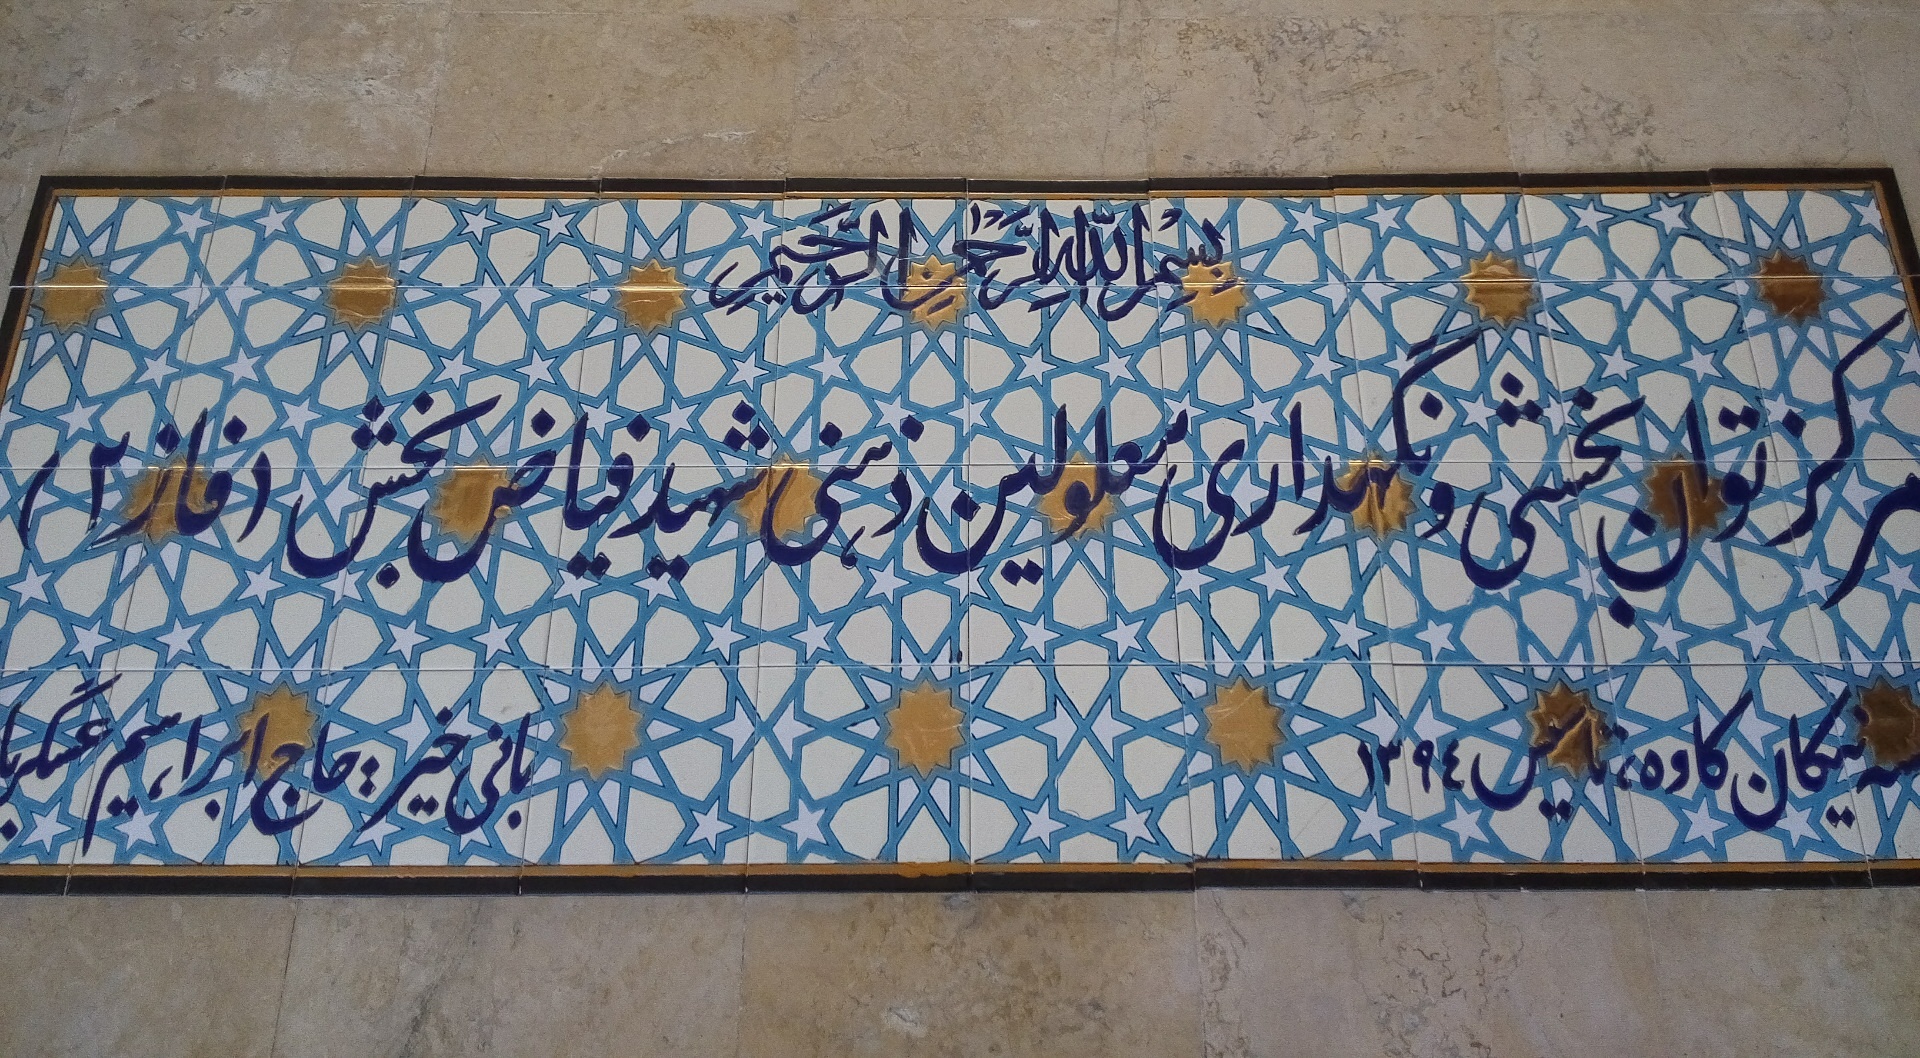 بِسْمِ اللهِ الرَّحْمنِ الرَّحیمِ
مرکز توان بخشی و نگهداری معلولین ذهنی شهید فیاض بخش (فاز ۲)
نیکان کاوه، تاسیس ۱۳۹۴
بانی خیر: حاج ابراهیم عسگر